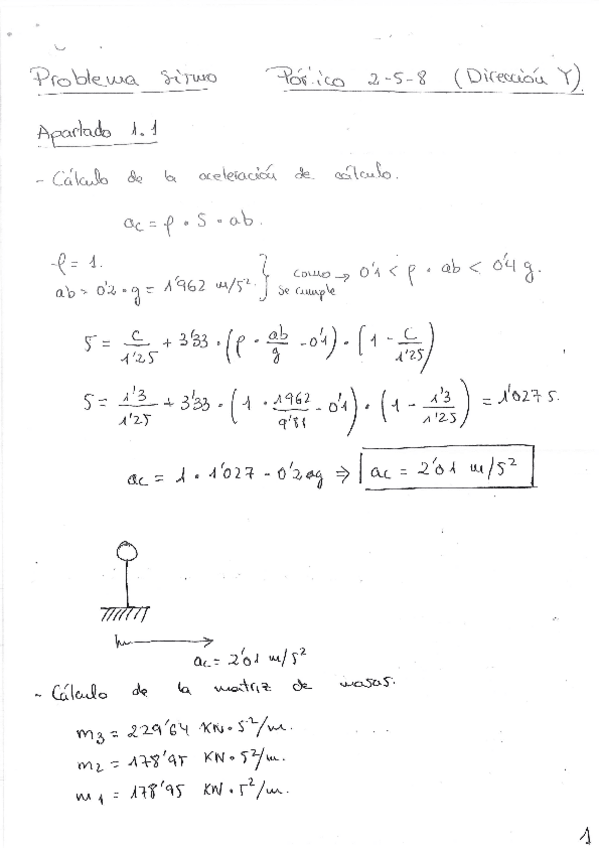 Problema Sismo Pórtico 2-5-8 (Dirección Y)
Apartado 1.1
- Cálculo de la aceleración de cálculo.
ac = ρ · S · ab.
ρ = 1.
ab = 0'2 · g = 1'962 m/s². } como se cumple → 0'1 < ρ · ab < 0'4 g.
S = C/1'25 + 3'33 · (ρ · ab/g - 0'1) · (1 - C/1'25)
S = 1'3/1'25 + 3'33 · (1 · 1962/9'81 - 0'1) · (1 - 1'3/1'25) = 1'027 S.
ac = 1 · 1'027 - 0'2 · g ⇒ ac = 2'01 m/s²
ac = 2'01 m/s²
- Cálculo de la matriz de masas.
m3 = 229'64 KN · s²/m.
m2 = 178'95 KN · s²/m.
m1 = 178'95 KN · s²/m.
1